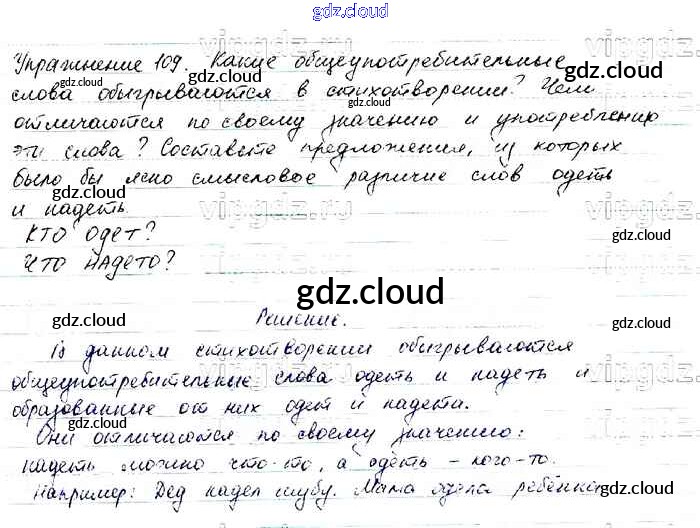 gdz.cloud
Упражнение 109. Какие общеупотребительные
gdz.cloud gdz.cloud
слова обыгрываются в стихотворении? Чем
gdz.cloud
отличаются по своему значению и употреблению
эти слова? Составьте предложения, из которых
gdz.cloud
было бы ясно смысловое различие слов одеть
gdz.cloud
и надеть.
vipgdz.ru
КТО ОДЕТ?
gdz.cloud
ЧТО НАДЕТО?
gdz.cloud
Решение.
gdz.cloud gdz.cloud
В данном стихотворении обыгрываются
общеупотребительные слова одеть и надеть и
образованные от них одет и надета.
gdz.cloud gdz.cloud
Они отличаются по своему значению:
надеть можно что-то, а одеть – кого-то.
Например: Дед надел шубу. Мама одела ребёнка.
gdz.cloud gdz.cloud